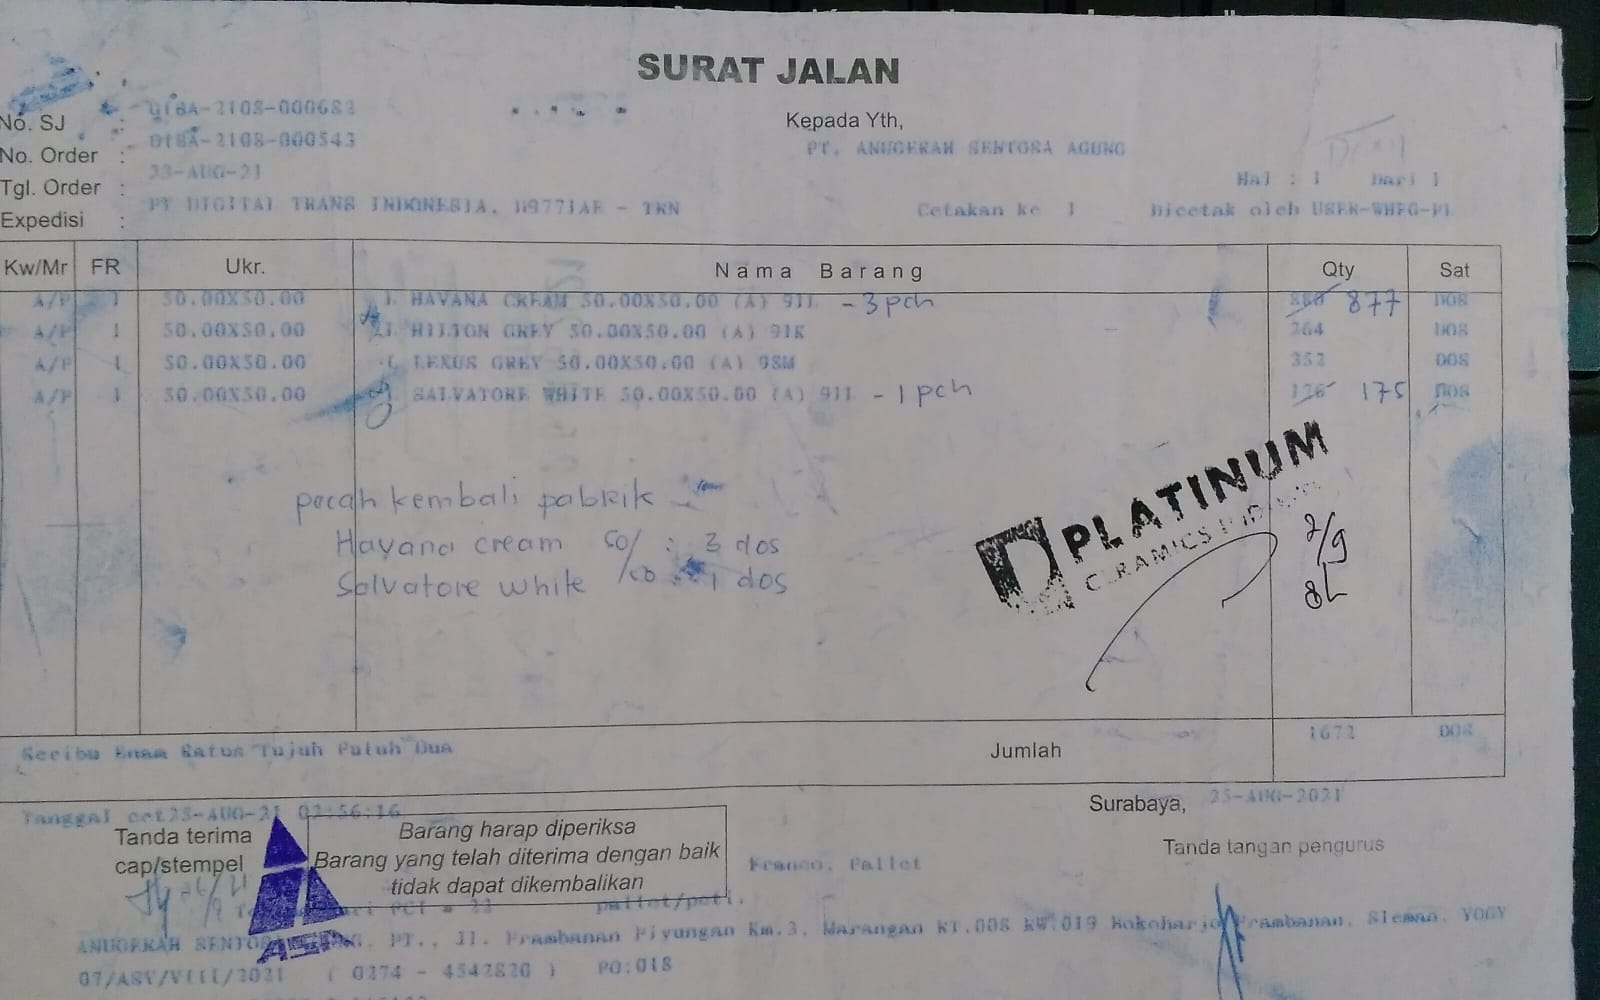 SURAT JALAN
No. SJ : 018A-2108-000683
No. Order : 018A-2108-000543
Tgl. Order : 23-AUG-21
Expedisi : PT DIGITAL TRANS INDONESIA, - TRN
Kepada Yth,
PT. ANUGERAH SENTOSA AGUNG
Hal : 1 Dari 1
Cetakan ke 1 Dicetak oleh
Kw/Mr FR Ukr. Nama Barang Qty Sat
A/P 1 50.00X50.00 HAVANA CREAM 50.00X50.00 (A) 91L - 3 pch 880 877 DOS
A/P 1 50.00X50.00 HILTON GREY 50.00X50.00 (A) 91K 264 DOS
A/P 1 50.00X50.00 LEXUS GREY 50.00X50.00 (A) 98M 352 DOS
A/P 1 50.00X50.00 SALVATORE WHITE 50.00X50.00 (A) 91L - 1 pch 176 175 DOS
pecah kembali pabrik
Havana cream 50/ : 3 dos
Salvatore white /50 : 1 dos
PLATINUM
CERAMICS
2/9
Seribu Enam Ratus Tujuh Puluh Dua
Jumlah 1672 DOS
Tanggal cet25-AUG-21 02:56:16
Surabaya, 25-AUG-2021
Tanda terima
cap/stempel
Barang harap diperiksa
Barang yang telah diterima dengan baik
tidak dapat dikembalikan
Franco, Pallet
Tanda tangan pengurus
pallet/peti.
ASA
ANUGERAH SENTOSA PT., Jl. Prambanan Piyungan Km.3, Marangan RT.008 RW.019 Bokoharjo Prambanan, Sleman, YOGY
07/ASY/VIII/2021 ( 0274 - 4542820 ) PO:018